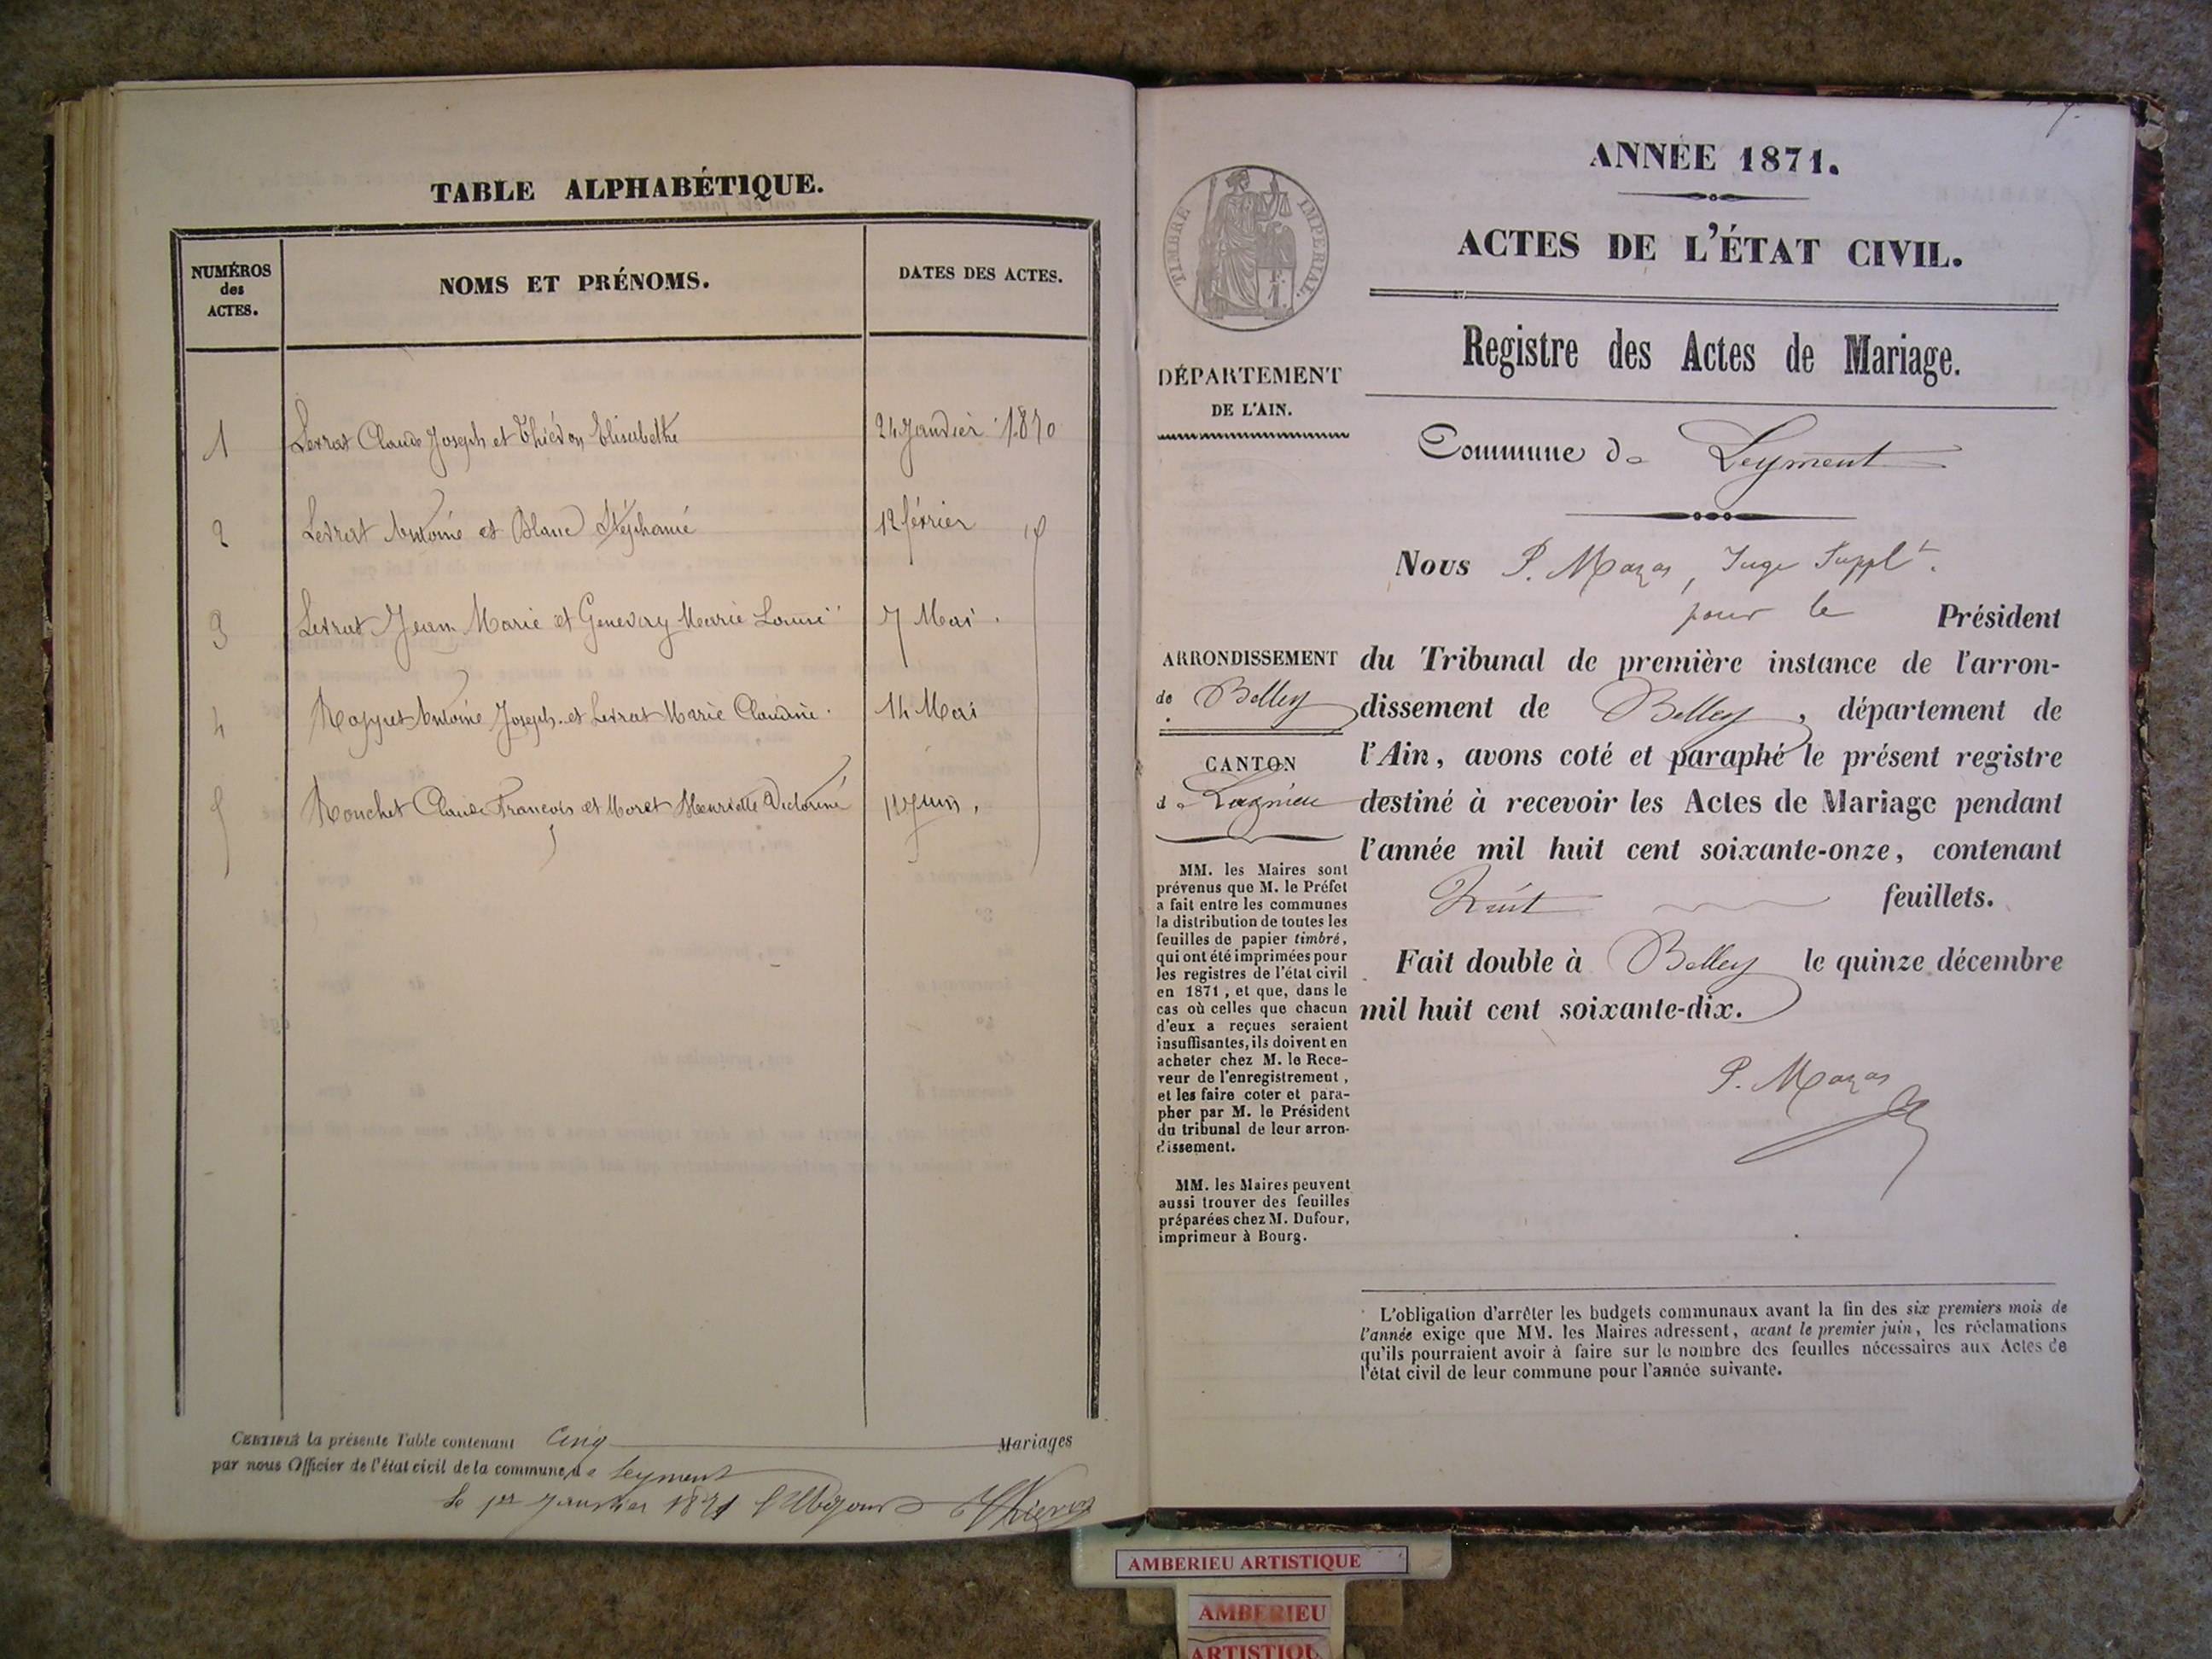 TABLE ALPHABÉTIQUE.
NUMÉROS
des
ACTES.
NOMS ET PRÉNOMS.
DATES DES ACTES.
1 Levrat Claude Joseph et Thiévon Elisabethe 24 Janvier 1870
2 Levrat Antoine et Blanc Stéphanie 12 février
3 Levrat Jean Marie et Genevay Marie Louise 7 Mai
4 Rappet Antoine Joseph et Levrat Marie Claudine 14 Mai
5 Ronchet Claude François et Moret Henriette Victorine Juin
CERTIFIÉ la présente Table contenant Cinq Mariages
par nous Officier de l'état civil de la commune de Leyment
Le 1er Janvier 1871
ANNÉE 1871.
ACTES DE L'ÉTAT CIVIL.
Registre des Actes de Mariage.
TIMBRE IMPERIAL.
DÉPARTEMENT
DE L'AIN.
Commune de Leyment
Nous P. Mazas, Juge Supplt.
pour le Président
du Tribunal de première instance de l'arron-
dissement de Belley, département de
l'Ain, avons coté et paraphé le présent registre
destiné à recevoir les Actes de Mariage pendant
l'année mil huit cent soixante-onze, contenant
huit feuillets.
Fait double à Belley le quinze décembre
mil huit cent soixante-dix.
P. Mazas
ARRONDISSEMENT
de Belley
CANTON
de Lagnieu
MM. les Maires sont
prévenus que M. le Préfet
a fait entre les communes
la distribution de toutes les
feuilles de papier timbré,
qui ont été imprimées pour
les registres de l'état civil
en 1871, et que, dans le
cas où celles que chacun
d'eux a reçues seraient
insuffisantes, ils doivent en
acheter chez M. le Rece-
veur de l'enregistrement,
et les faire coter et para-
pher par M. le Président
du tribunal de leur arron-
dissement.
MM. les Maires peuvent
aussi trouver des feuilles
préparées chez M. Dufour,
imprimeur à Bourg.
L'obligation d'arrêter les budgets communaux avant la fin des six premiers mois de
l'année exige que MM. les Maires adressent, avant le premier juin, les réclamations
qu'ils pourraient avoir à faire sur le nombre des feuilles nécessaires aux Actes de
l'état civil de leur commune pour l'année suivante.
AMBERIEU ARTISTIQUE
AMBERIEU
ARTISTIQU